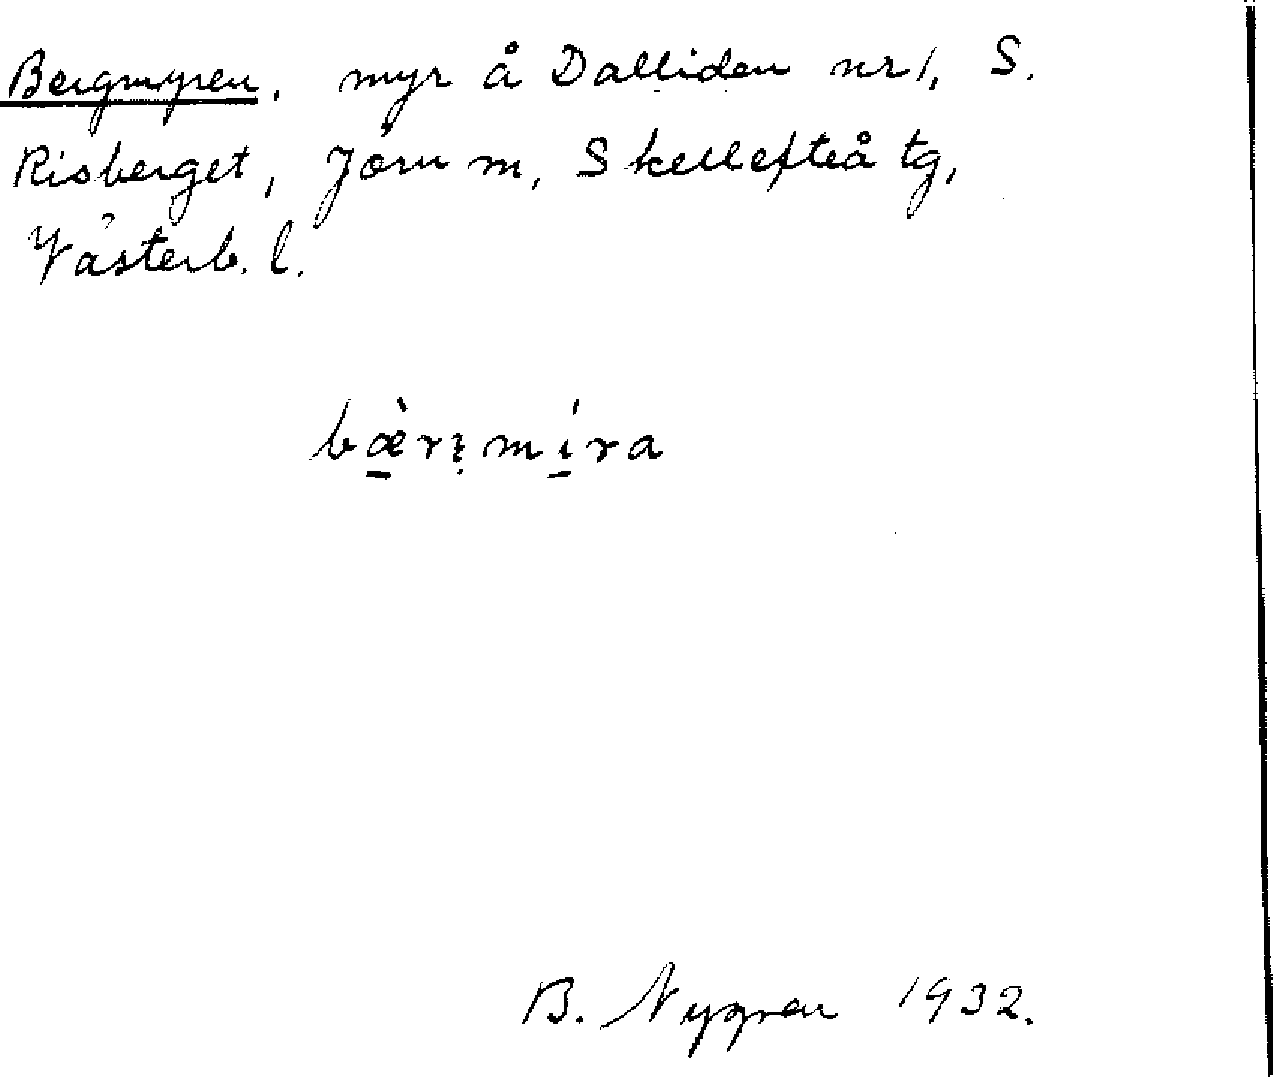 Bergmyren, myr å Dalliden nr 1, S.
Risberget, Jörn m, Skellefteå tg,
Västerb. l.
bæ̀rɪmíra
B. Nygren 1932.